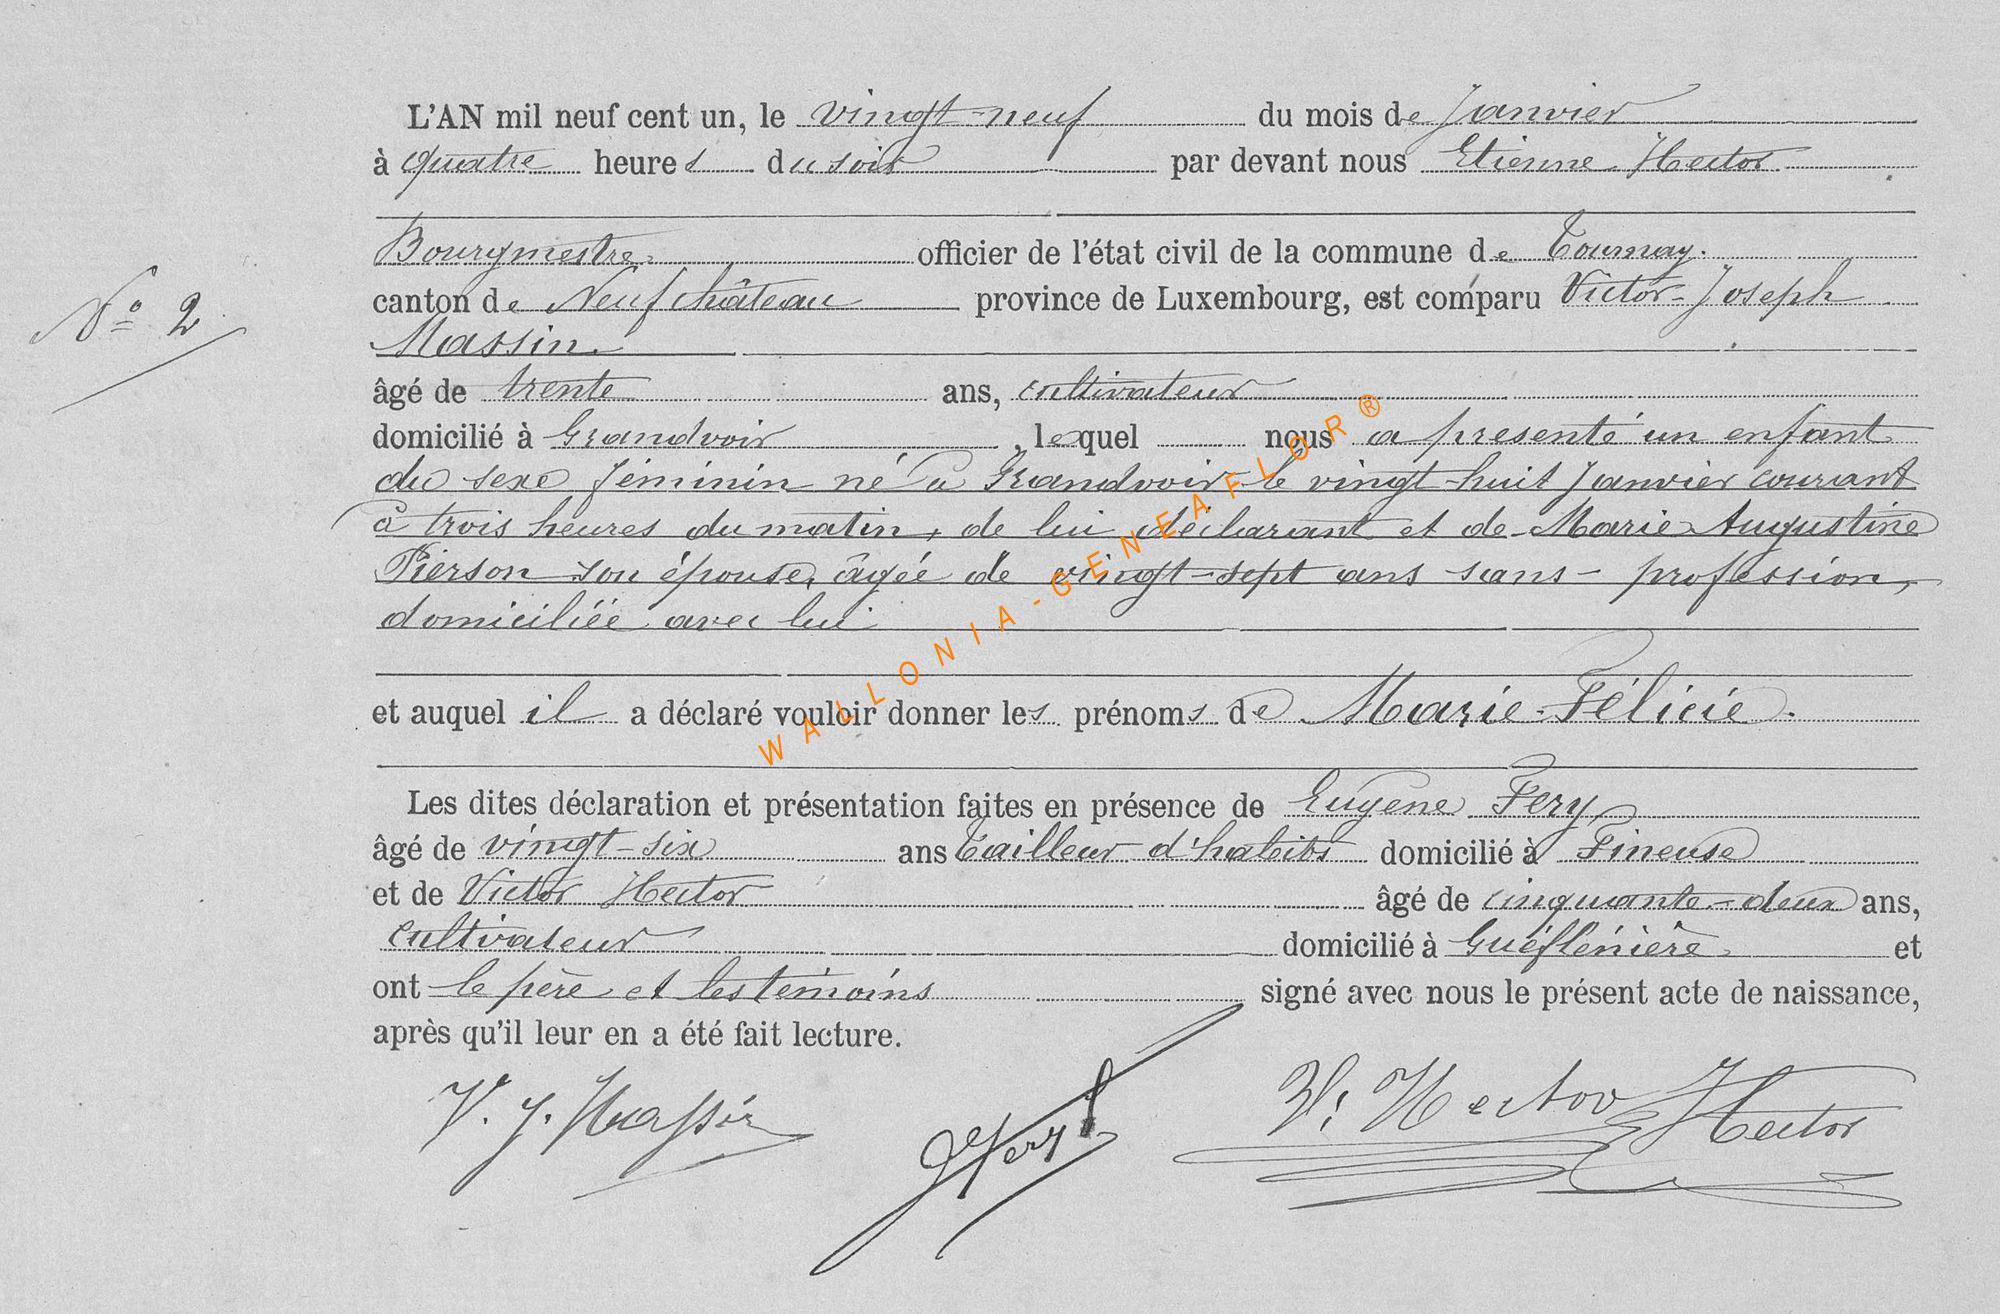 L'AN mil neuf cent un, le vingt-neuf du mois de Janvier
à quatre heures du soir par devant nous Etienne Hector
Bourgmestre officier de l'état civil de la commune de Tournay.
N° 2
canton de Neufchâteau province de Luxembourg, est comparu Victor-Joseph
Massin.
âgé de trente ans, cultivateur
domicilié à Grandvoir, lequel nous a présenté un enfant
du sexe féminin né à Grandvoir le vingt-huit Janvier courant
à trois heures du matin, de lui déclarant et de Marie Augustine
Pierson son épouse, âgée de vingt-sept ans sans-profession,
domiciliée avec lui
et auquel il a déclaré vouloir donner les prénoms de Marie-Félicie.
Les dites déclaration et présentation faites en présence de Eugène Fery
âgé de vingt-six ans Tailleur d'habits domicilié à Fineuse
et de Victor Hector âgé de cinquante-deux ans,
cultivateur domicilié à Guéflénière et
ont le père et les témoins signé avec nous le présent acte de naissance,
après qu'il leur en a été fait lecture.
V. J. Massin Fery V. Hector Hector
WALLONIA-GENEAFLOR®